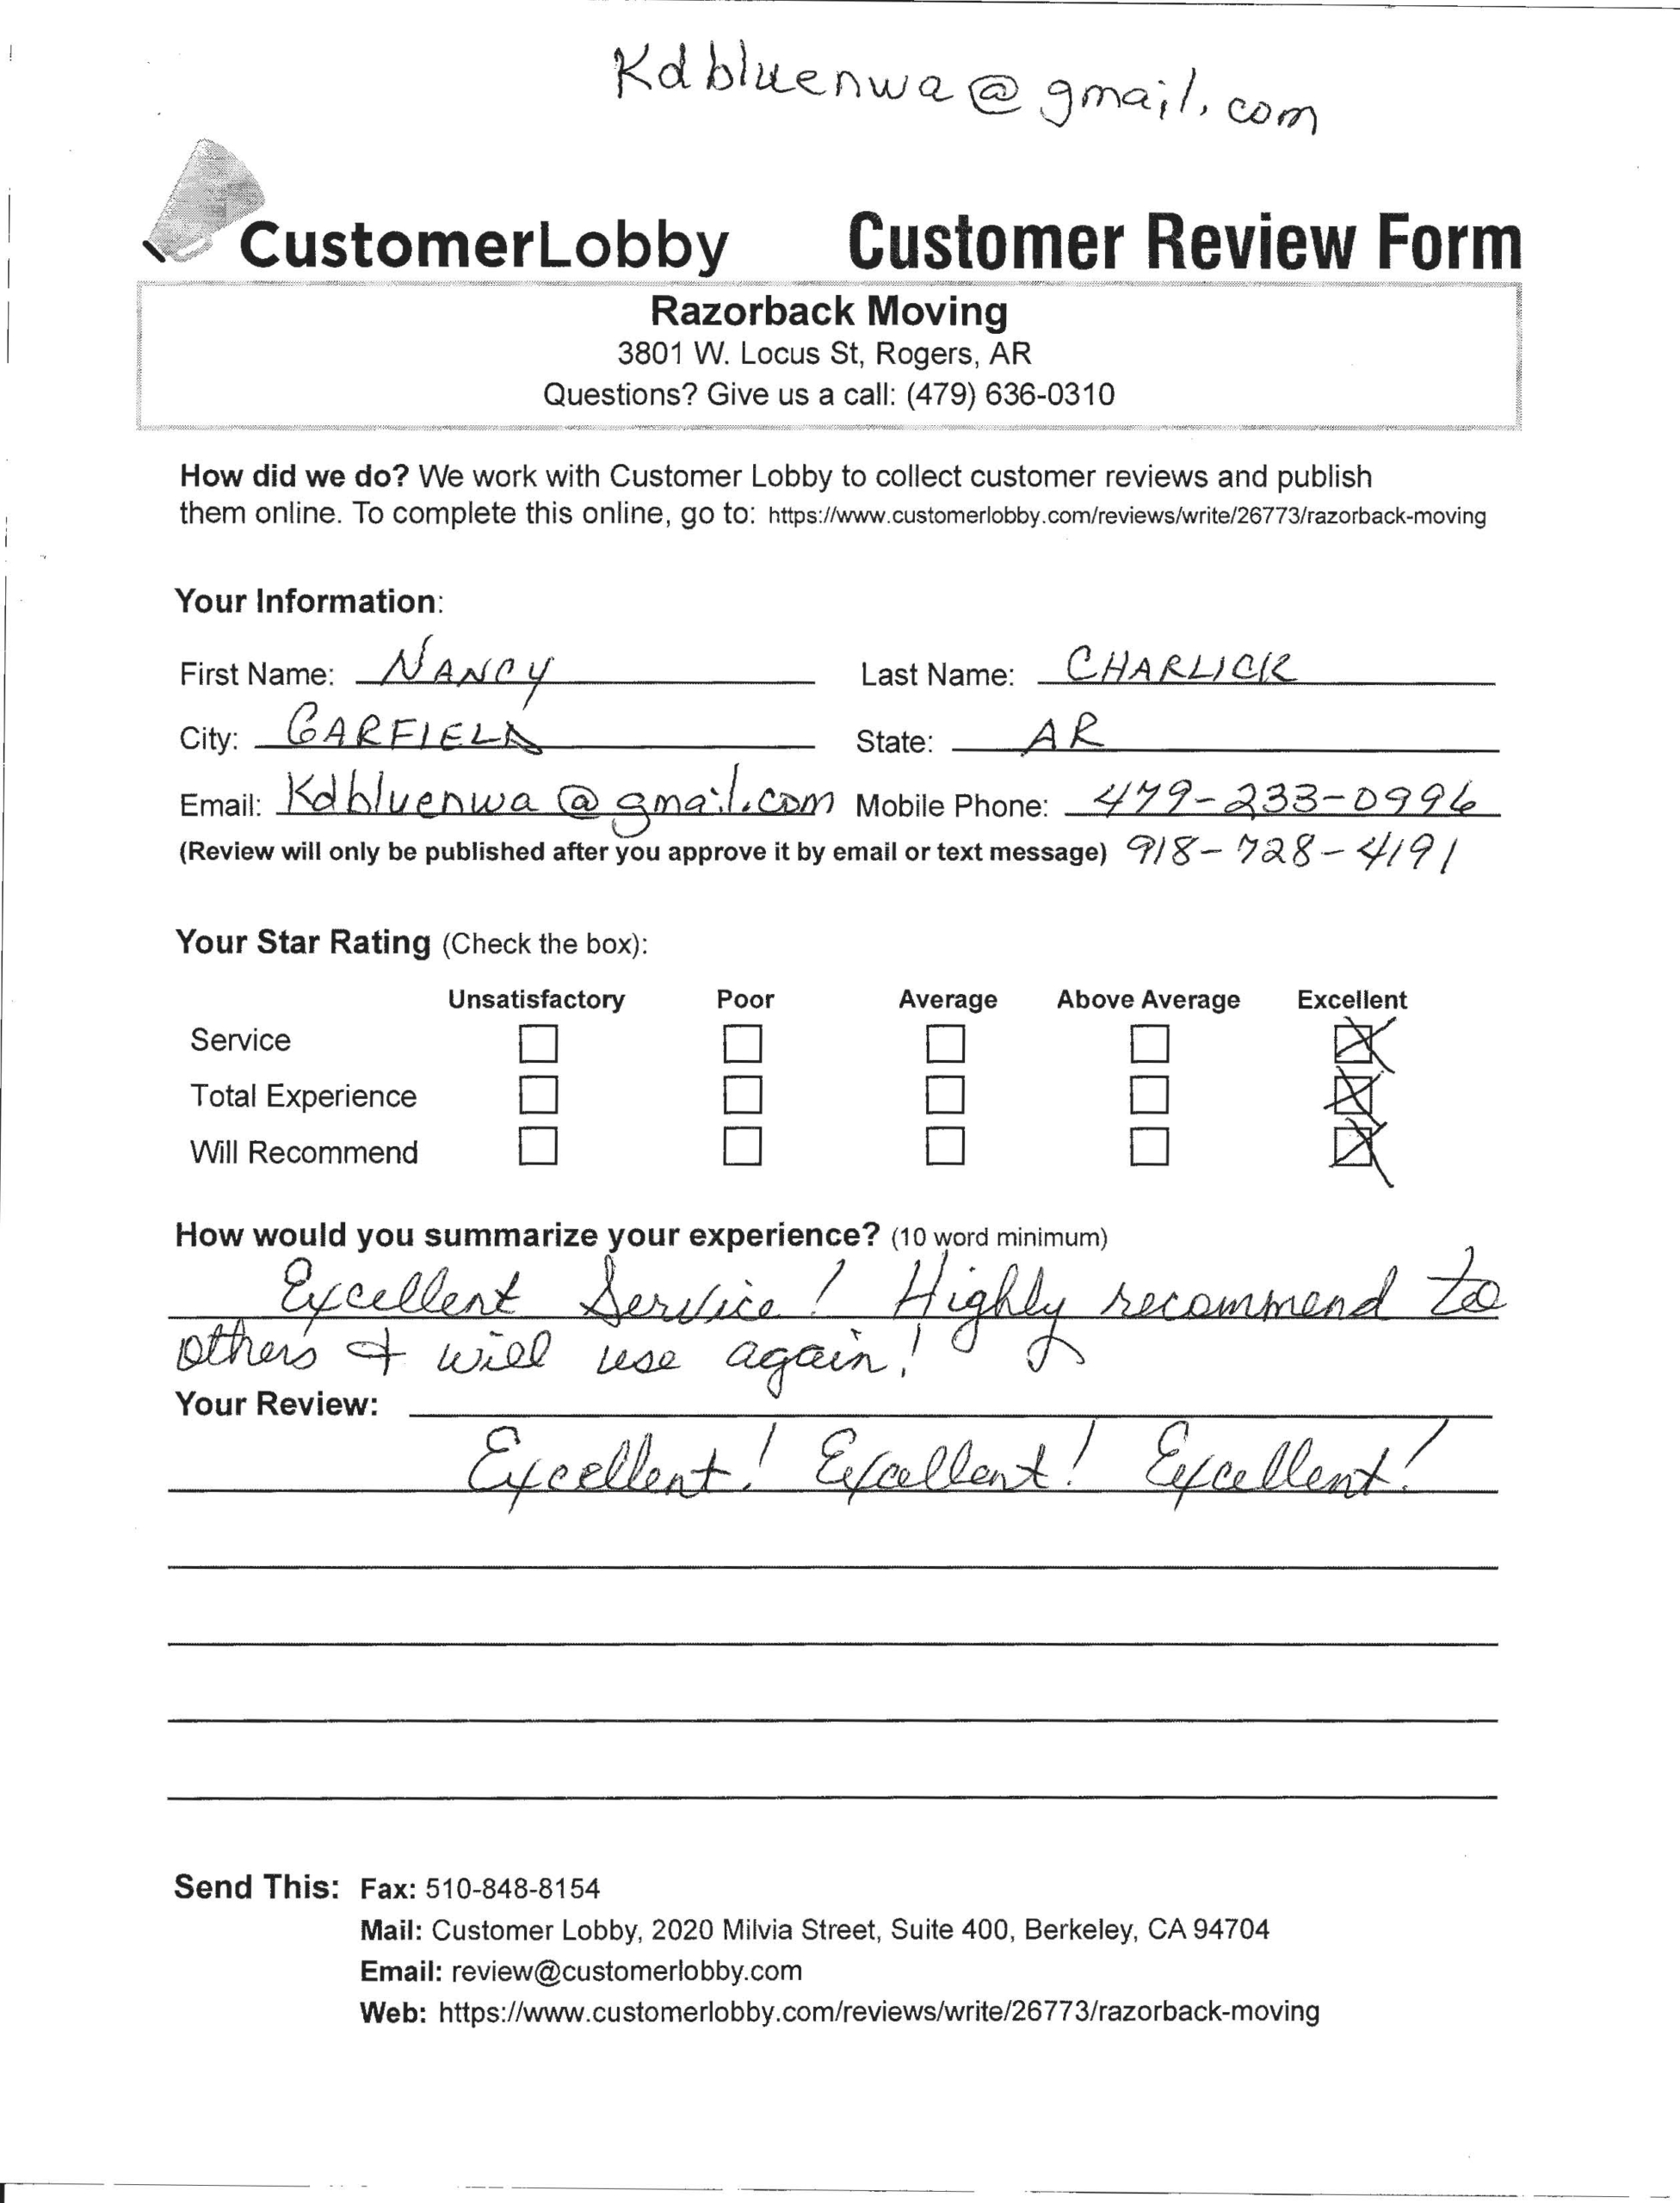 Kdbluenwa@gmail.com
CustomerLobby Customer Review Form
Razorback Moving
3801 W. Locus St, Rogers, AR
Questions? Give us a call: (479) 636-0310
How did we do? We work with Customer Lobby to collect customer reviews and publish
them online. To complete this online, go to: https://www.customerlobby.com/reviews/write/26773/razorback-moving
Your Information:
First Name: NANCY Last Name: CHARLICK
City: GARFIELD State: AR
Email: Kdbluenwa@gmail.com Mobile Phone: 479-233-0996
(Review will only be published after you approve it by email or text message) 918-728-4191
Your Star Rating (Check the box):
Unsatisfactory Poor Average Above Average Excellent
Service
Total Experience
Will Recommend
How would you summarize your experience? (10 word minimum)
Excellent Service! Highly recommend to
others & will use again!
Your Review:
Excellent! Excellent! Excellent!
Send This: Fax: 510-848-8154
Mail: Customer Lobby, 2020 Milvia Street, Suite 400, Berkeley, CA 94704
Email: review@customerlobby.com
Web: https://www.customerlobby.com/reviews/write/26773/razorback-moving